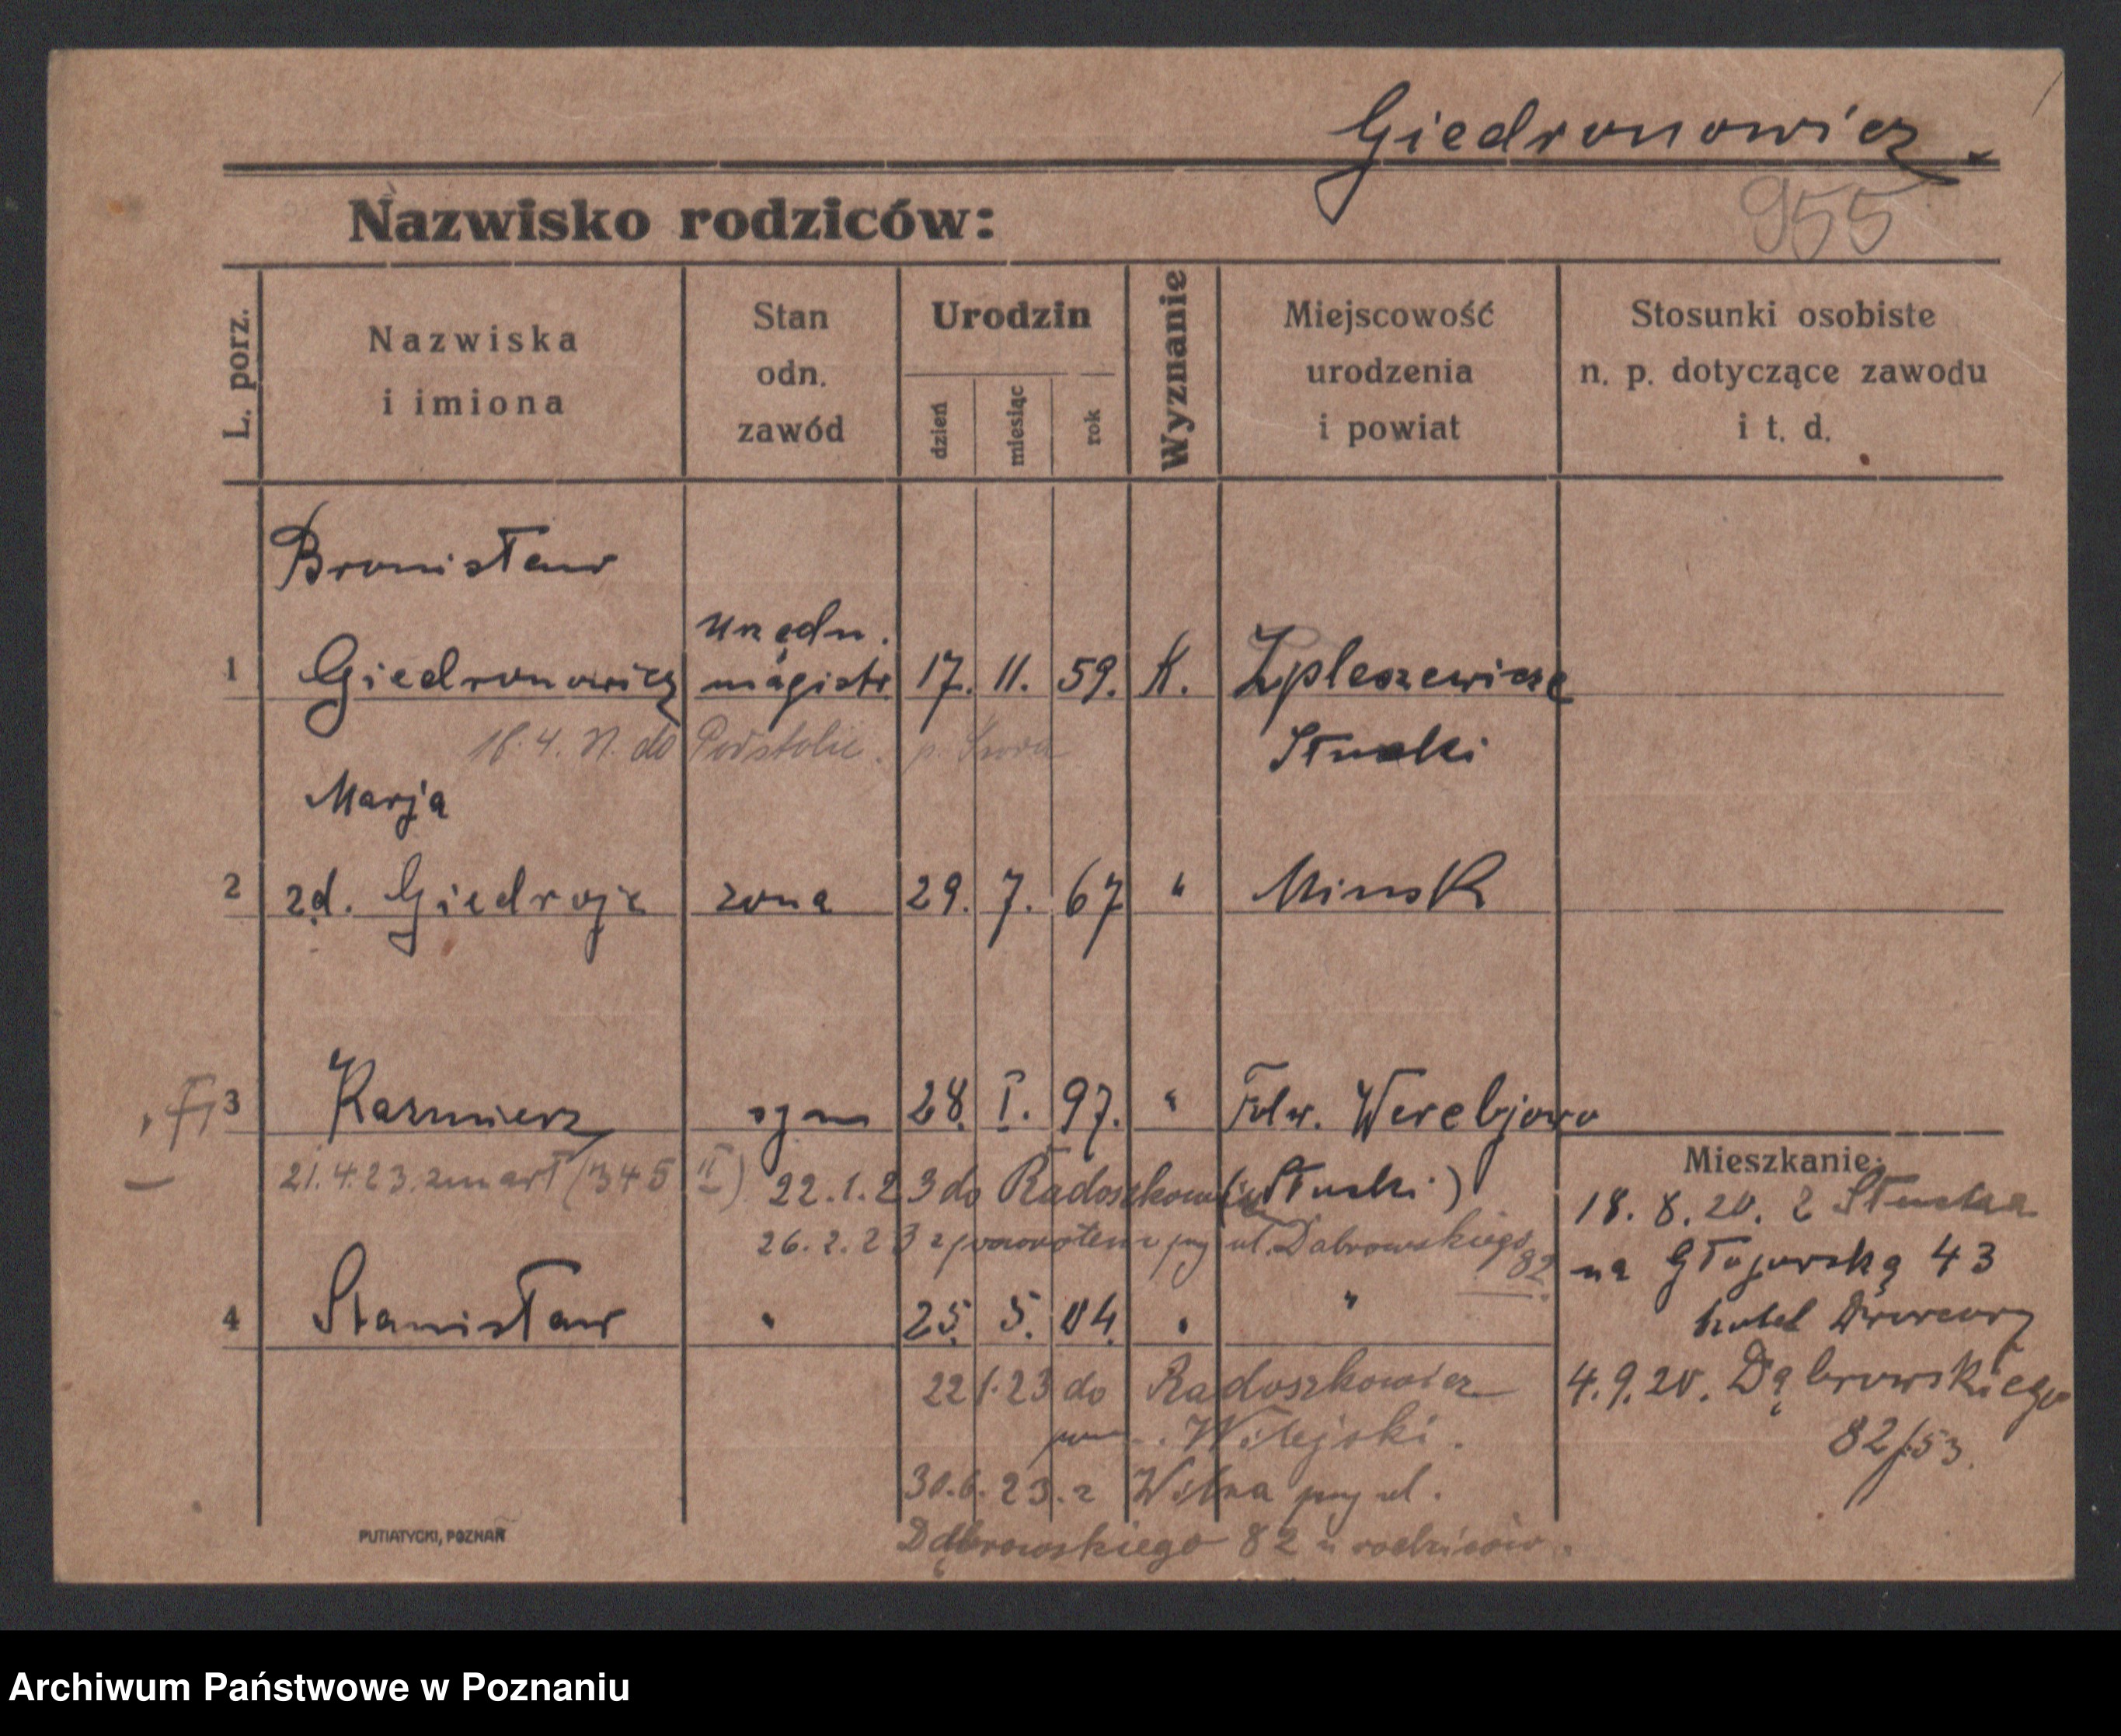 Giedronowicz
955
Nazwisko rodziców:
L. porz.
Nazwiska
i imiona
Stan
odn.
zawód
Urodzin
dzień
miesiąc
rok
Wyznanie
Miejscowość
urodzenia
i powiat
Stosunki osobiste
n. p. dotyczące zawodu
i t. d.
Bronisław
urzędn.
1 Giedronowicz magistr. 17. 11. 59. K.
do Podstolic. p.
Słucki
Marja
2 zd. Giedrojc żona 29. 7. 67 " Minsk
3 Kazmierz syn 28. I. 97. " Folw. Werebjowo
21.4.23. zmarł (345 II) 22.1.23 do Radoszkowic (Słucki)
26.2.23 z powrotem przy ul. Dabrowskiego
82
4 Stanisław " 25. 5. 04. " "
22 1.23 do Radoszkowicz
pow. Wilejski.
30.6.23. z Wilna przy ul.
Dąbrowskiego 82 u rodziców.
Mieszkanie:
18. 8. 20. z Słucka
na Głogowską 43
hotel Dworcowy
4.9.20. Dąbrowskiego
82/53.
PUTIATYCKI, POZNAŃ
Archiwum Państwowe w Poznaniu